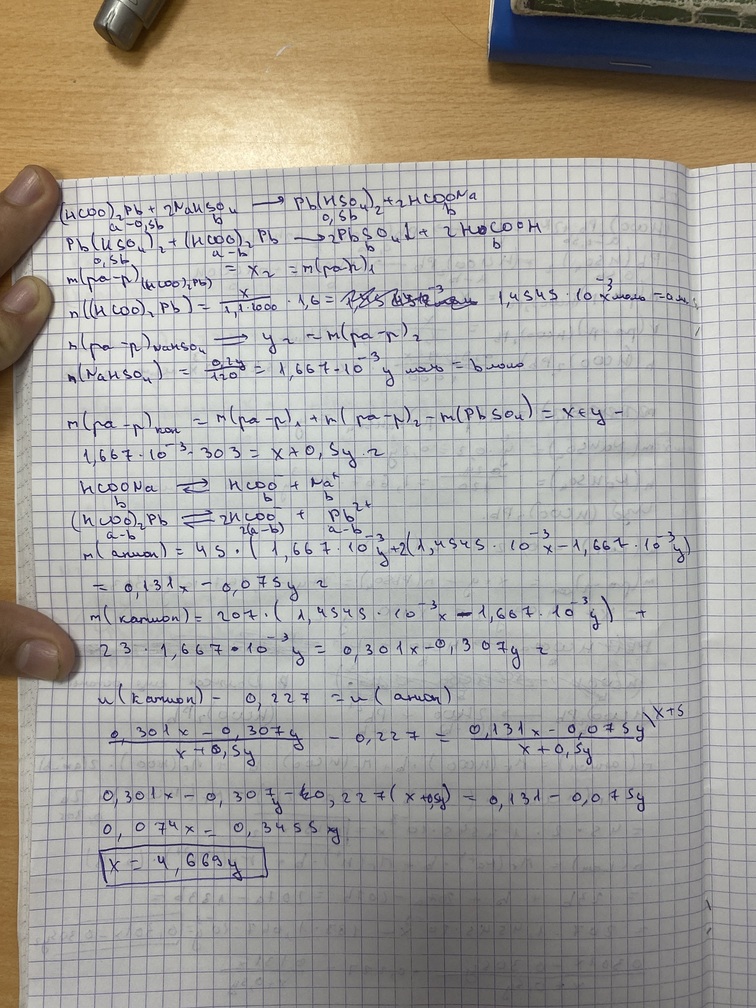 (HCOO)₂Pb + 2NaHSO₄ → Pb(HSO₄)₂ + 2HCOONa
a-0,5b b 0,5b b
Pb(HSO₄)₂ + (HCOO)₂Pb → 2PbSO₄↓ + 2HCOOH
0,5b a-b b b
m(ра-р)(HCOO)₂Pb) = x г = m(ра-р)₁
n((HCOO)₂Pb) = x/1,1·1000 · 1,6 = 1,4545·10⁻³x моль = a моль
m(ра-р)NaHSO₄ ⇒ y г = m(ра-р)₂
n(NaHSO₄) = 0,2y/120 = 1,667·10⁻³y моль = b моль
m(ра-р)кон = m(ра-р)₁ + m(ра-р)₂ - m(PbSO₄) = x+y -
1,667·10⁻³·303 = x+0,5y г
HCOONa ⇌ HCOO⁻ + Na⁺
b b b
(HCOO)₂Pb ⇌ 2HCOO⁻ + Pb²⁺
a-b 2(a-b) a-b
m(анион) = 45·(1,667·10⁻³y+2(1,4545·10⁻³x-1,667·10⁻³y)
= 0,131x - 0,075y г
m(катион) = 207·(1,4545·10⁻³x-1,667·10⁻³y) +
23·1,667·10⁻³y = 0,301x-0,307y г
ω(катион) - 0,227 = ω(анион)
0,301x - 0,307y/x+0,5y - 0,227 = 0,131x - 0,075y/x+0,5y \x+5
0,301x - 0,307y - 0,227(x+0,5y) = 0,131 - 0,075y
0,074x = 0,3455y
x = 4,669y